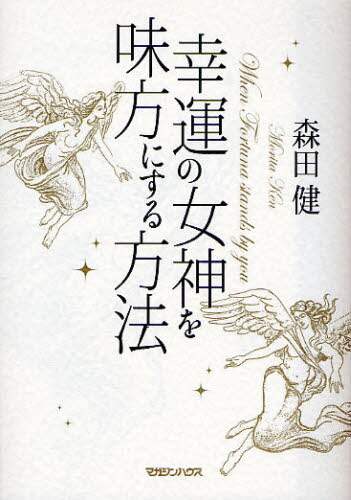 森田健
Morita Ken
When Fortuna stands by you
幸運の女神を
味方にする方法
マガジンハウス